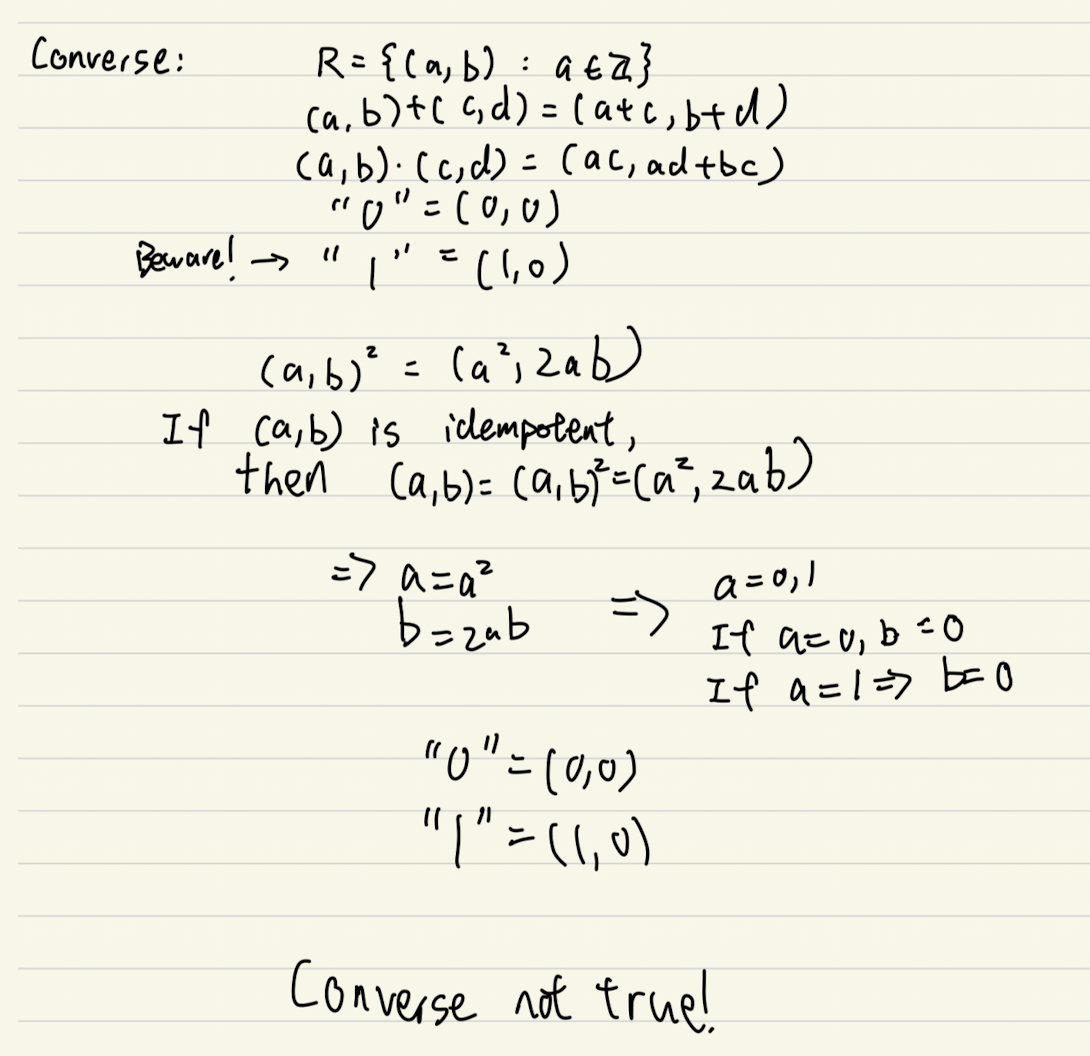 Converse: R = {(a, b) : a ∈ ℤ}
(a, b) + (c, d) = (a+c, b+d)
(a, b) · (c, d) = (ac, ad+bc)
"0" = (0, 0)
Beware! → "1" = (1, 0)
(a, b)² = (a², 2ab)
If (a, b) is idempotent,
then (a, b) = (a, b)² = (a², 2ab)
=> a = a² => a = 0, 1
b = 2ab If a = 0, b = 0
If a = 1 => b = 0
"0" = (0, 0)
"1" = (1, 0)
Converse not true!